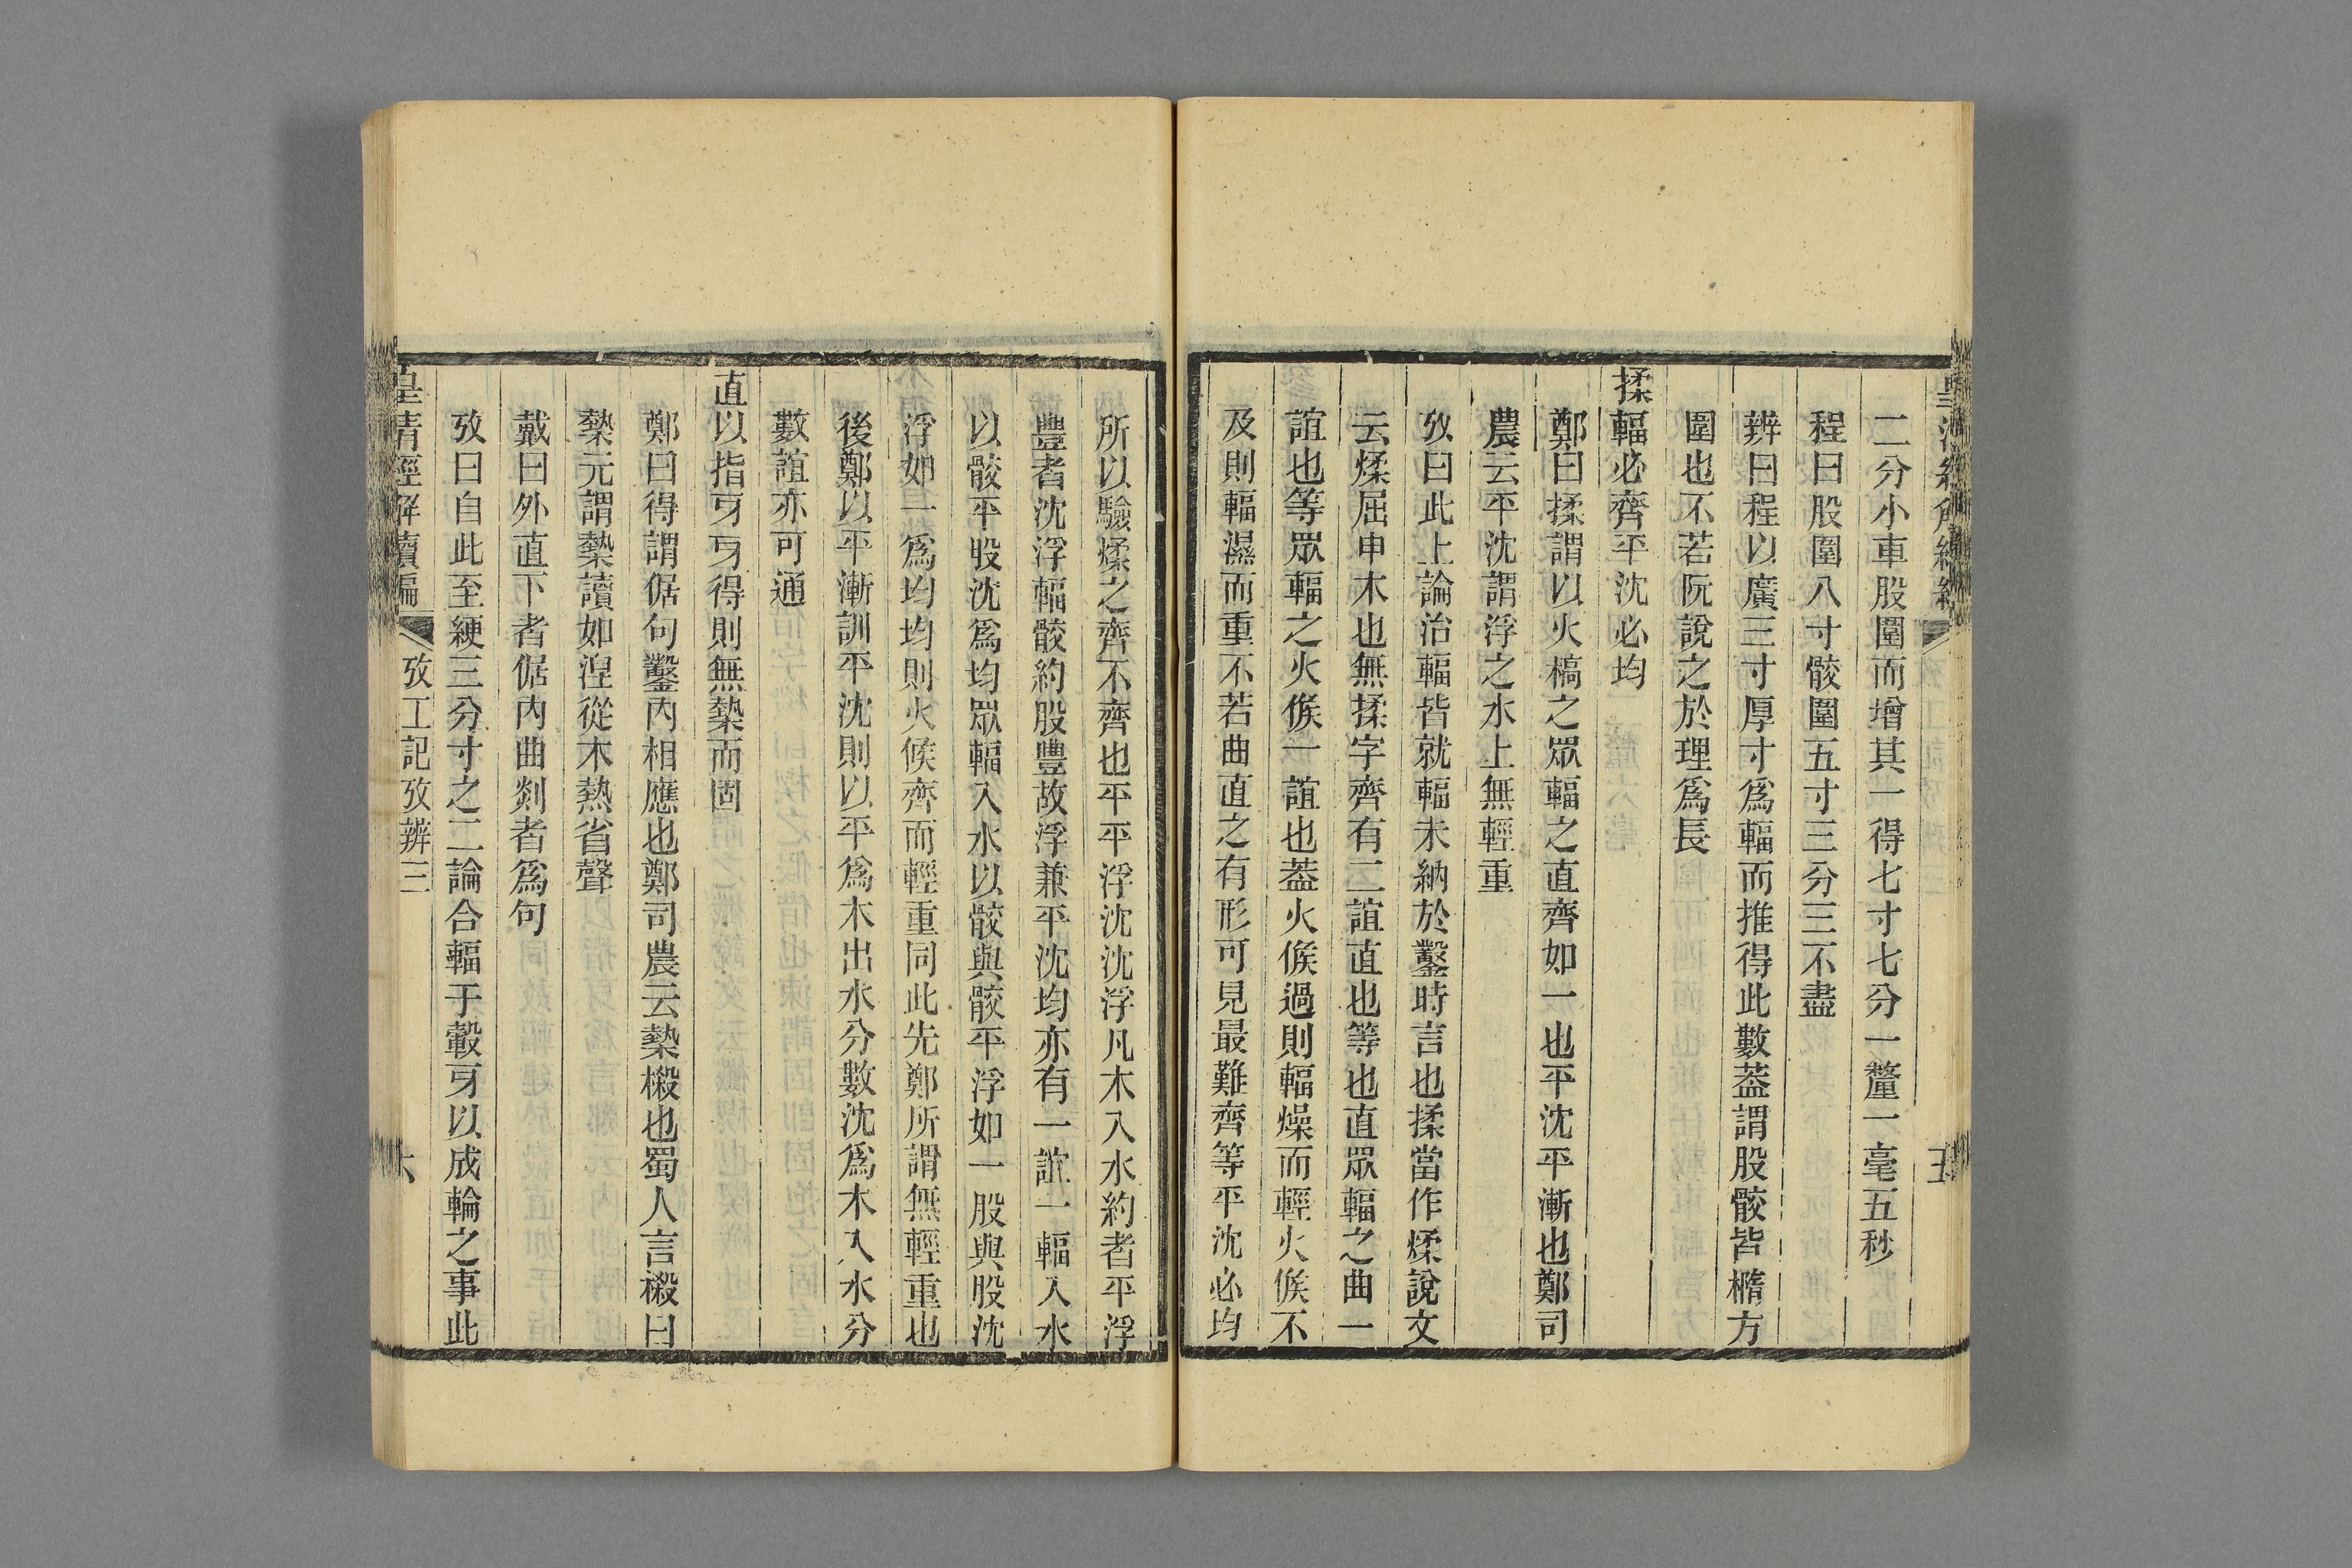 二分小車股圍而增其一得七寸七分一釐一毫五秒
程曰股圍八寸骹圍五寸三分三不盡
辨曰程以廣三寸厚寸爲輻而推得此數葢謂股骹皆橢方
圍也不若阮說之於理爲長
揉輻必齊平沈必均
鄭曰揉謂以火槁之眾輻之直齊如一也平沈平漸也鄭司
農云平沈謂浮之水上無輕重
攷曰此上論治輻皆就輻未納於鑿時言也揉當作煣說文
云煣屈申木也無揉字齊有二誼直也等也直眾輻之曲一
誼也等眾輻之火候一誼也葢火候過則輻燥而輕火候不
及則輻濕而重不若曲直之有形可見最難齊等平沈必均
所以驗煣之齊不齊也平平浮沈沈浮凡木入水約者平浮
豐者沈浮輻骹約股豐故浮兼平沈均亦有一誼一輻入水
以骹平股沈爲均眾輻入水以骹與骹平浮如一股與股沈
浮如一爲均均則火候齊而輕重同此先鄭所謂無輕重也
後鄭以平漸訓平沈則以平爲木出水分數沈爲木入水分
數誼亦可通
直以指㸦㸦得則無槷而固
鄭曰得謂倨句鑿內相應也鄭司農云槷樧也蜀人言樧曰
槷元謂槷讀如涅從木熱省聲
戴曰外直下者倨內曲剡者爲句
攷曰自此至綆三分寸之二論合輻于轂㸦以成輪之事此
皇清經解續編 攷工記攷辨三 六